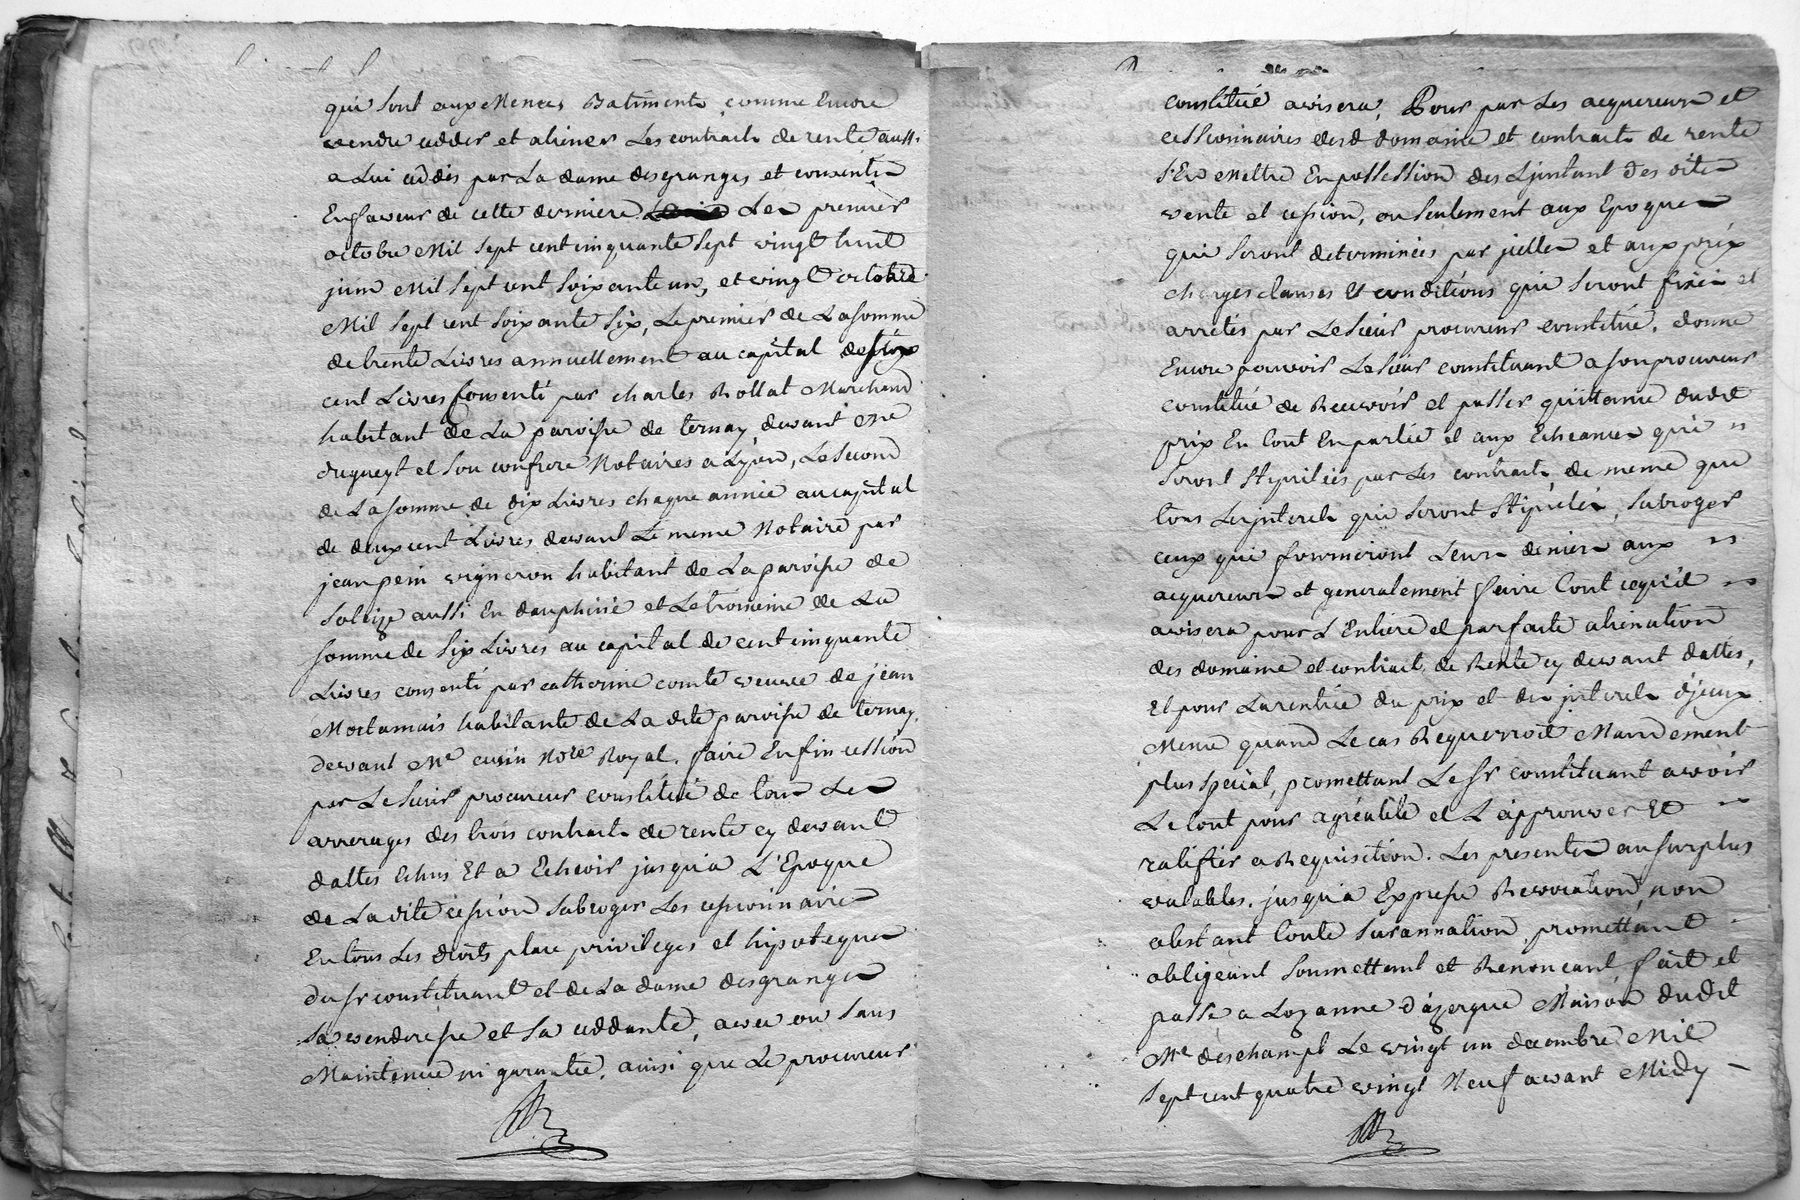 qui sont aux mences Batiments, comme Encore
vendre cedder et aliener Les contracts de rente aussi
a Lui ceddés par La dame desgranges et consentis
En faveur de cette derniere Les premier
octobre Mil sept cent cinquante sept vingt huit
juin Mil sept cent soixante un, et vingt octobre
Mil sept cent soixante six, Le premier de La somme
de trente Livres annuellement au capital de six
cent Livres consenti par charles Rollat Marchand
habitant de La paroisse de ternay devant Me
dugueyt et son confrere Notaires a Lyon, Le second
de La somme de dix Livres chaque année au capital
de deux cent Livres devant Le meme Notaire par
jean pein vigneron habitant de La paroisse de
Solaize aussi En dauphiné et Le troisieme de La
somme de six Livres au capital de cent cinquante
Livres consenti par catherine comte veuve de jean
Moctamais habitante de La dite paroisse de ternay,
devant Me cusin Nore Royal. faire Enfin cession
par Le sieur procureur constitué de tous Les
arrerages des trois contracts de rente cy devant
dattes Echus Et a Echeoir jusqu'a L'Epoque
de La dite cession subroger Les cessionnaires
En tous Les droits place privileges et hipoteques
du sr constituant et de La dame desgranges
sa venderesse et sa ceddante, avec ou sans
Maintenue ni garantie. ainsi que Le procureur
constitué avisera; Pour par Les acquereurs et
cessionnaires desd domaine et contracts de rente
s'En Mettre En possession des L'jnstant des dites
vente et cession, ou seulement aux Epoques
qui seront determinées par jcelles et aux prix
charges clauses et conditions qui seront fixés et
arretés par Le sieur procureur constitué. donne
Encore pouvoir Le sieur constituant a son procureur
constitué de Recevoir et passer quittance dudit
prix En tout En partie et aux Echeances qui
seront stipulées par Les contracts, de meme que
tous Les jnterets qui seront stipulés, subroger
ceux qui fourniront Leurs deniers aux
acquereurs et generalement faire tout ce qu'il
avisera pour L'Entiere et parfaite alienation
des domaine et contract de Rente cy devant dattes,
Et pour La rentrée du prix et des jnterets d'jceux
Meme quand Le cas Requerroit Mandement
plus special, promettant Le sr constituant avoir
Le tout pour agréable et L'approuver Et
ratifier a Requisition. Les presentes au surplus
valables. jusqu'a Expresse Revocation, non
obstant toute surannation promettant
obligeant soumettant et Renoncant, fait et
passé a Lozanne d'azergue Maison dudit
Me deschamps Le vingt un decembre Mil
sept cent quatre vingt Neuf avant Midy